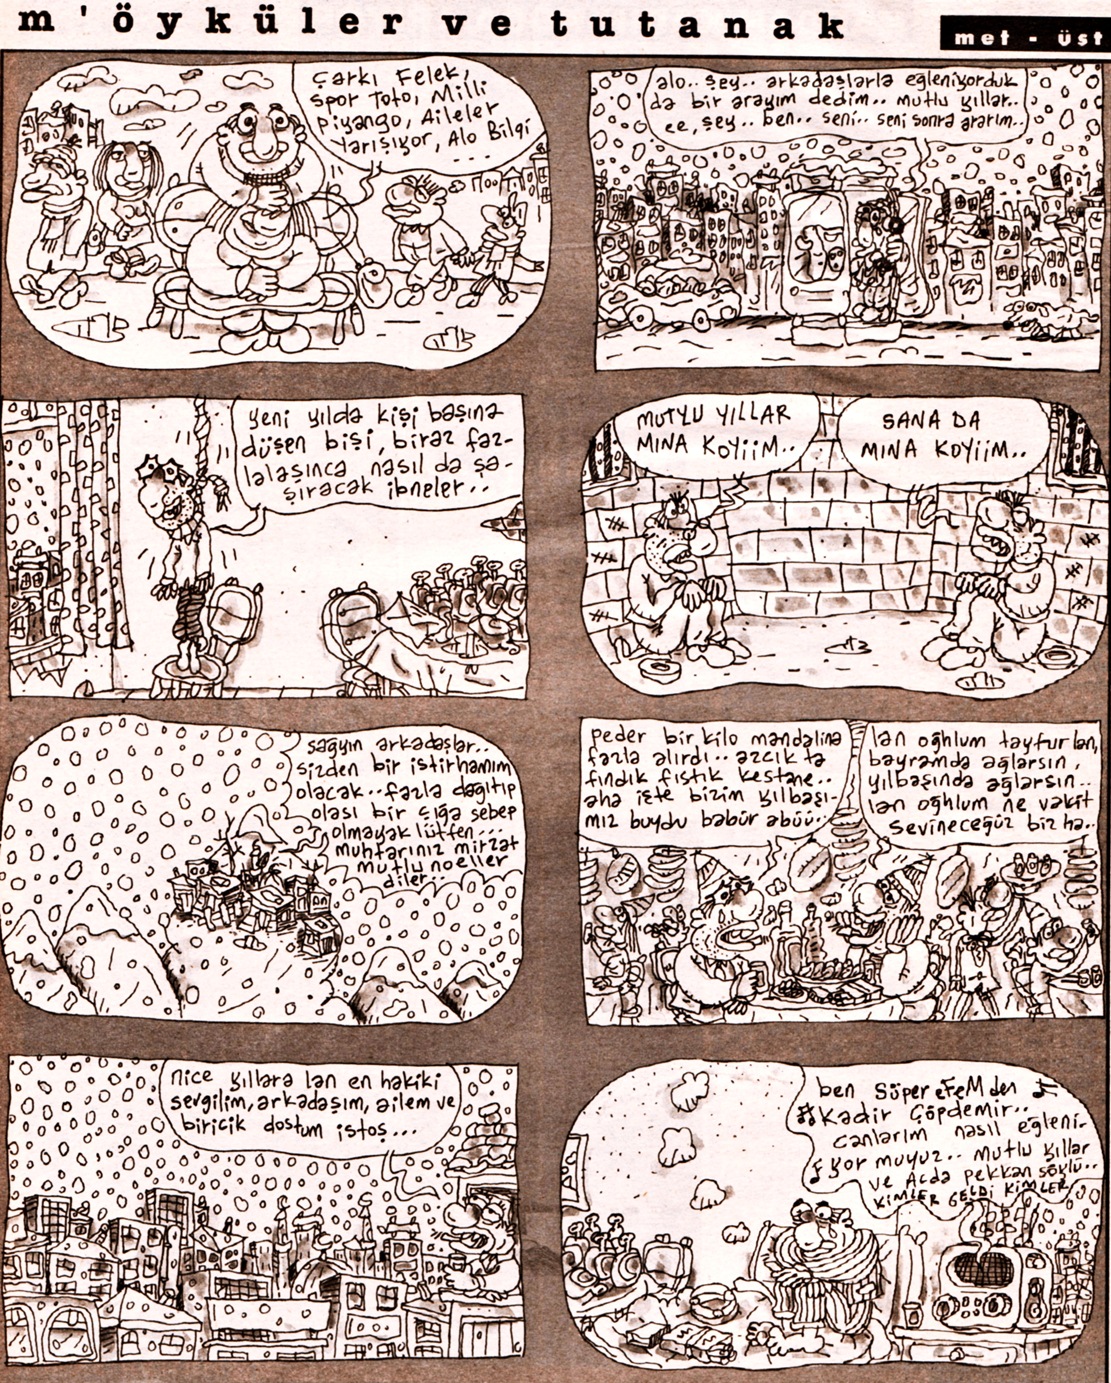 m'öyküler ve tutanak
met - üst
Çarkı Felek,
Spor Toto, Milli
Piyango, Aileler
Yarışıyor, Alo Bilgi
...
alo.. şey.. arkadaşlarla eğleniyorduk
da bir arayım dedim.. mutlu yıllar..
ee, şey.. ben.. seni.. seni sonra ararım..
yeni yılda kişi başına
düşen bişi, biraz faz-
lalaşınca, nasıl da şa-
şıracak ibneler..
MUTLU YILLAR
MINA KOYİİM..
SANA DA
MINA KOYİİM..
sağyın arkadaşlar..
sizden bir istirhamım
olacak.. fazla dağıtıp
olası bir çığa sebep
olmayak lütfen...
muhtarınız mirzat
mutlu noeller
diler..
peder bir kilo mandalina
fazla alırdı.. azcık ta
fındık fıstık kestane..
aha işte bizim yılbaşı-
mız buydu babür abüü..
lan oğhlum tayfur lan,
bayramda ağlarsın,
yılbaşında ağlarsın..
lan oğhlum ne vakit
sevineceğüz biz ha..
nice yıllara lan en hakiki
sevgilim, arkadaşım, ailem ve
biricik dostum istoş...
ben Süper eFeM den
Kadir Çöpdemir..
canlarım nasıl eğleni-
yor muyuz.. mutlu yıllar
ve Ajda pekkan söylü..
KİMLER GELDİ KİMLER